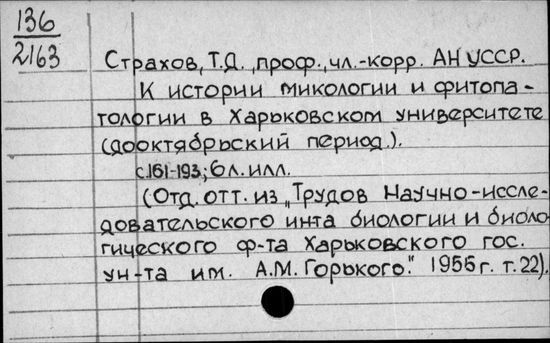 136
2163
Страхов, Т.Д., проф., чл.-корр. АН УССР.
К истории микологии и фитопа-
тологии в Харьковском университете
(дооктябрьский период.).
с.161-193; 6 л. илл.
(Отд. отт. из „Трудов Научно-иссле-
довательского инта биологии и биоло-
гического ф-та Харьковского гос.
ун-та им. А.М. Горького." 1955г. т.22).